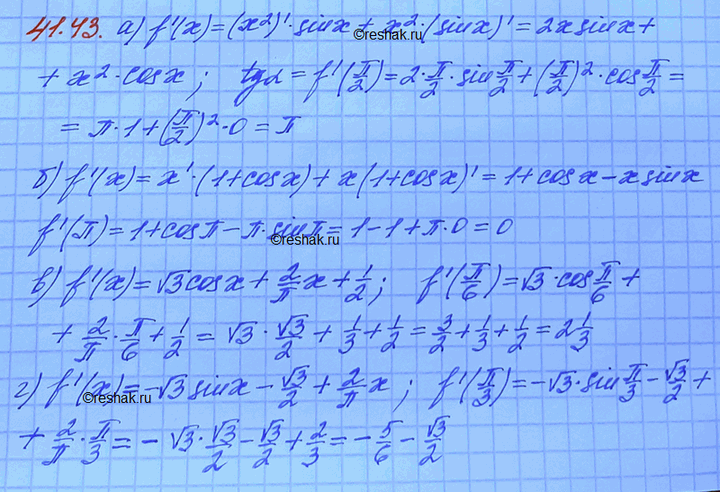 41.43. а) f'(x)=(x²)'·sinx+x²·(sinx)'=2x sinx+
©reshak.ru
+ x²·cosx; tgα=f'(π/2)=2·π/2·sin π/2+(π/2)²·cos π/2=
= π·1+(π/2)²·0=π
б) f'(x)=x'·(1+cosx)+x(1+cosx)'=1+cosx-x sinx
f'(π)=1+cosπ-π·sinπ=1-1+π·0=0
©reshak.ru
в) f'(x)=√3cosx+2/π x+1/2; f'(π/6)=√3·cos π/6+
+ 2/π·π/6+1/2=√3·√3/2+1/3+1/2=3/2+1/3+1/2=2 1/3
г) f'(x)=-√3 sinx-√3/2+2/π x; f'(π/3)=-√3·sin π/3-√3/2+
©reshak.ru
+ 2/π·π/3=-√3·√3/2-√3/2+2/3=-5/6-√3/2